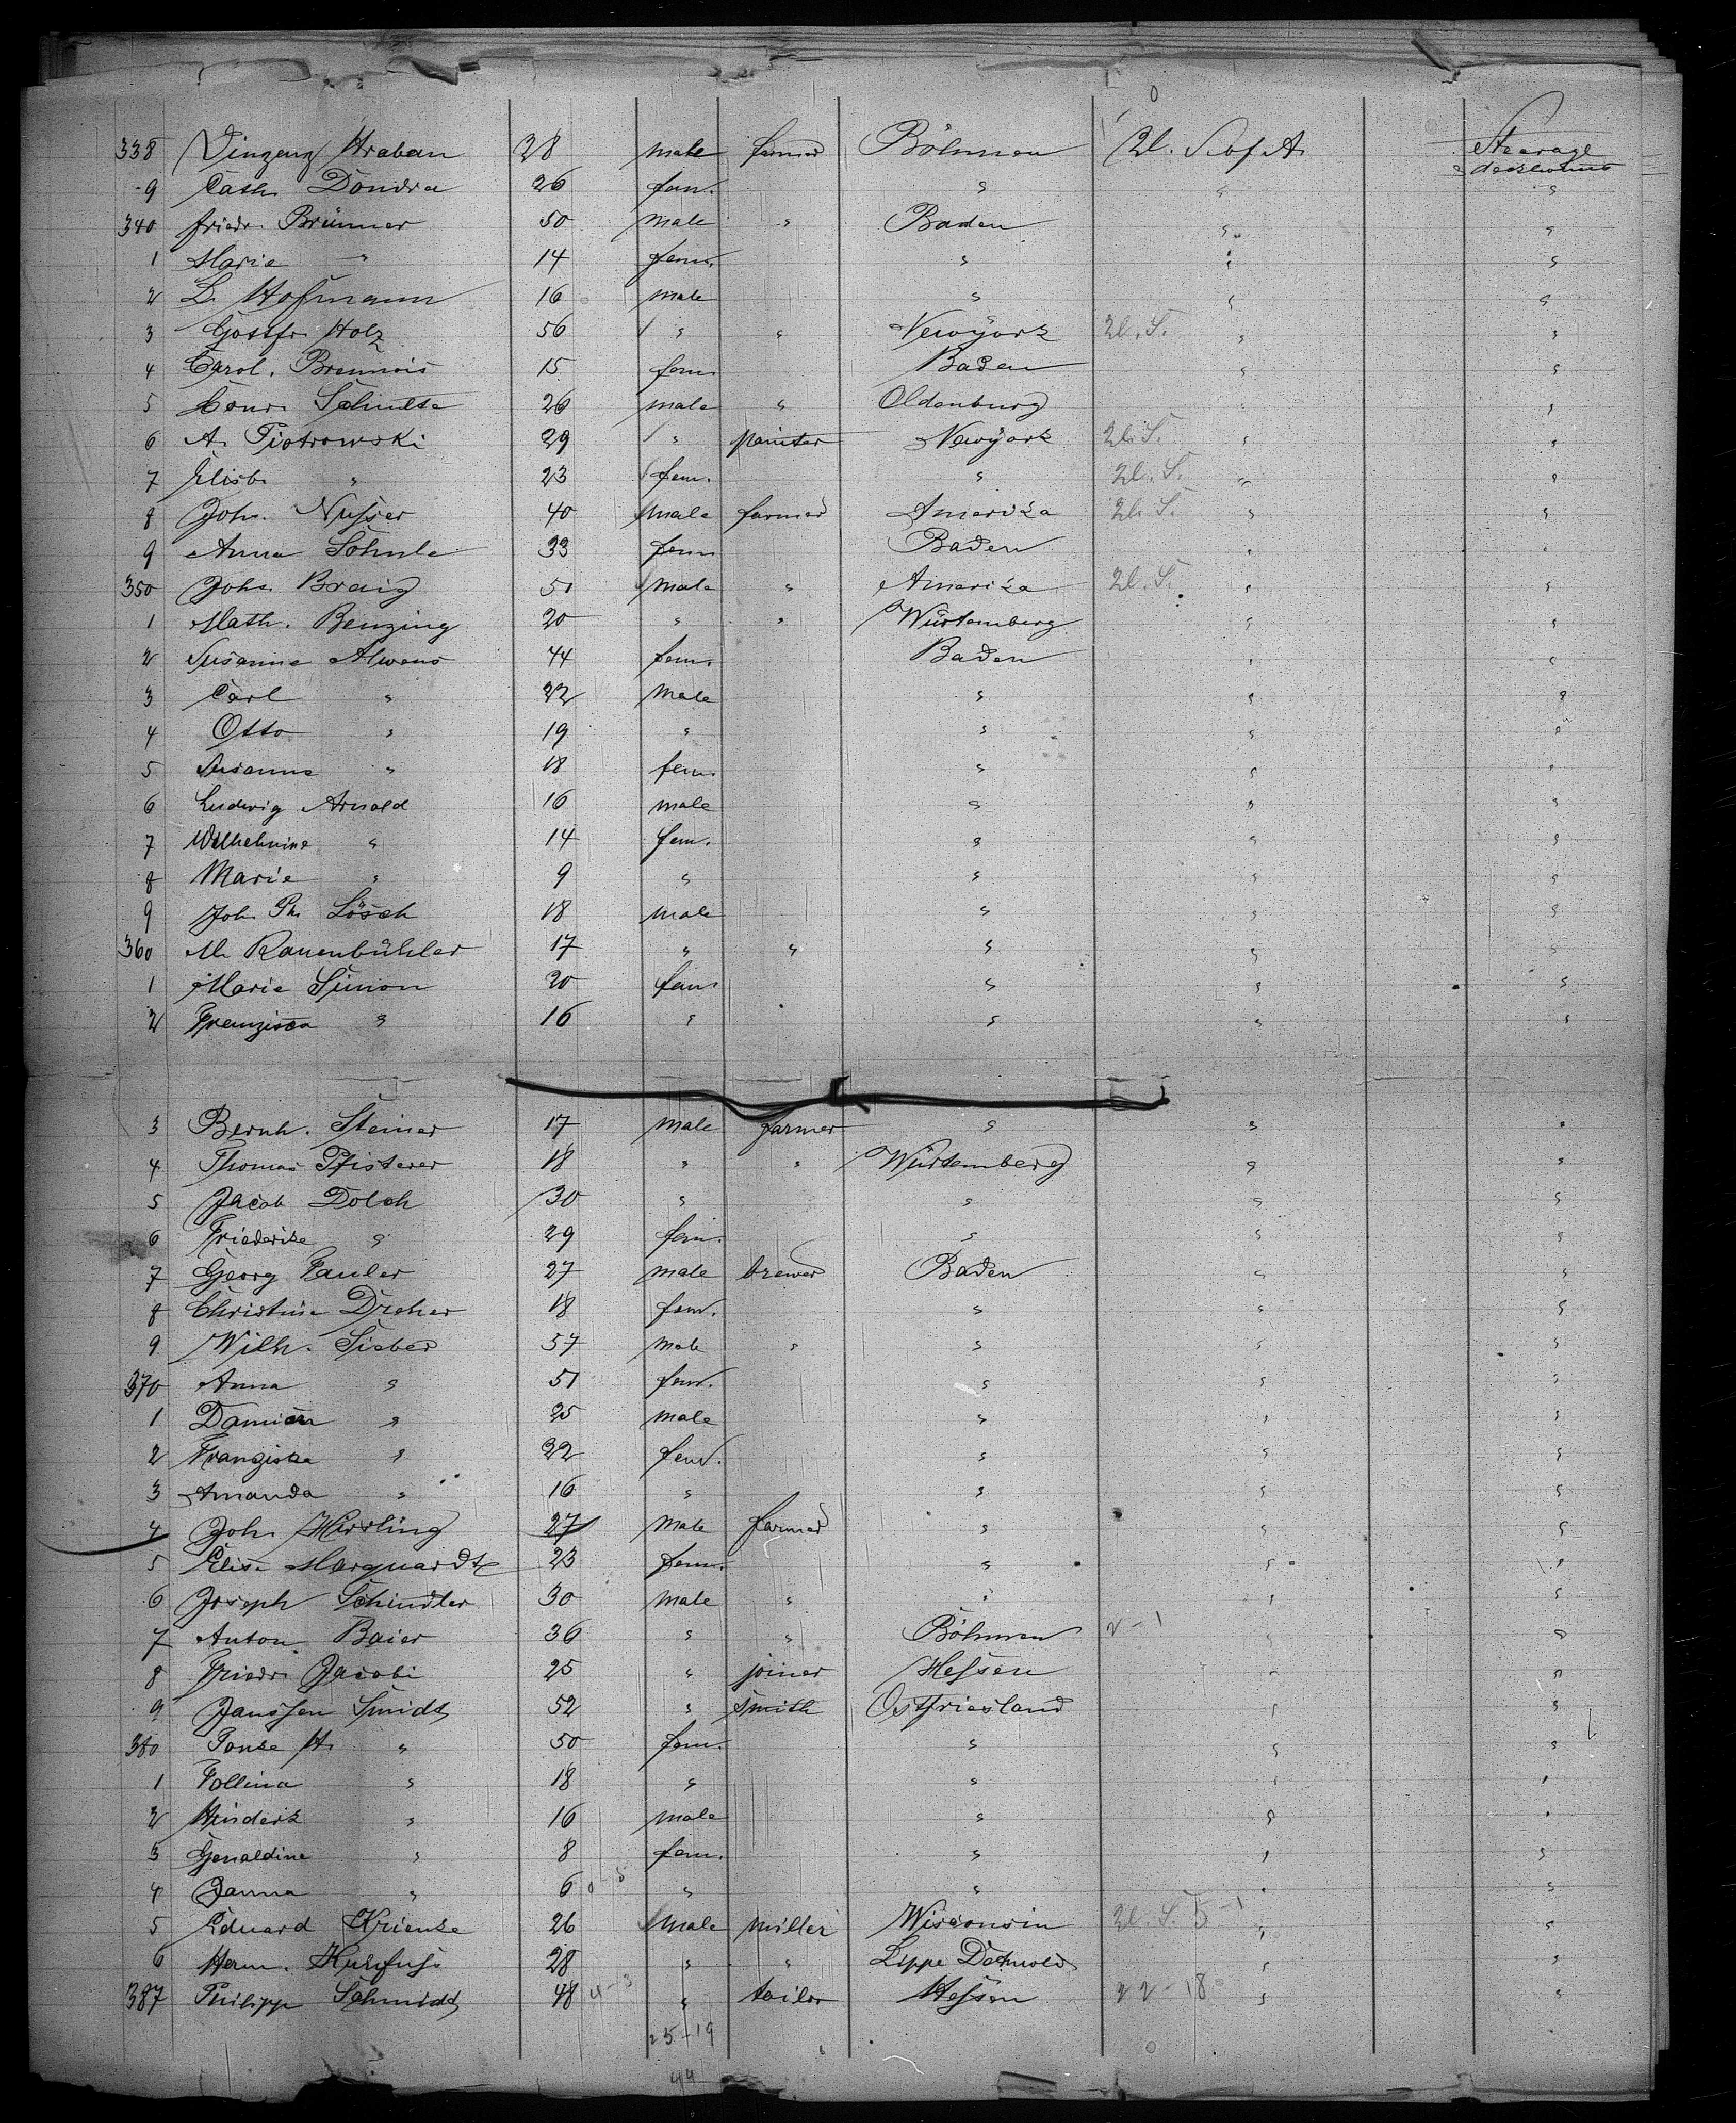 338 Vinzenz Hraban 28 male farmer Böhmen U. S. of A. Steerage
9 Cath. Dondra 26 fem. " " "
340 Friedr. Brünner 50 male " Baden " "
1 Marie " 14 fem. " " "
2 L. Hofmann 16 male " " "
3 Gottfr. Holz 56 " " Newyork U. S. " "
4 Carol. 15 fem. Baden " "
5 Conr. Schulte 26 male " Oldenburg "
6 A. Piotrowski 29 " painter Newyork U. S. " "
7 Elisb. " 23 fem. " U. S. " "
8 Joh. Nusser 40 male farmer Amerika U. S. " "
9 Anna Söhnle 33 fem. Baden " "
350 Johs. Braig 51 male " Amerika U. S. " "
1 Math. Benzing 20 " " Würtemberg " "
2 Susanne Alwens 44 fem. Baden " "
3 Carl " 22 male " " "
4 Otto " 19 " " " "
5 Susanna " 18 fem. " " "
6 Ludwig Arnold 16 male " " "
7 Wilhelmine " 14 fem. " " "
8 Marie " 9 " " " "
9 Joh. Ph. Lösch 18 male " " "
360 M. Rauenbühler 17 " " " " "
1 Marie Simon 20 fem. " " "
2 Franzisca " 16 " " " "
3 Bernh. Steiner 17 male farmer " " "
4 Thomas Pfisterer 18 " " Würtemberg " "
5 Jacob Dolch 30 " " " "
6 Friederike " 29 fem. " " "
7 Georg Fauler 27 male brewer Baden " "
8 Christine Dreher 18 fem. " " "
9 Wilh. Sieber 57 male " " " "
370 Anna " 51 fem. " " "
1 Damian " 25 male " " "
2 Franziska " 22 fem. " " "
3 Amanda " 16 " " " "
4 Joh. Hirrling 27 male farmer " " "
5 Elise Marquardt 23 fem. " " "
6 Joseph Schindler 30 male " " " "
7 Anton Baier 36 " " Böhmen 2-1 " "
8 Friedr. Jacobi 25 " joiner Hessen " "
9 Janssen Smidt 52 " smith Ostfriesland " "
380 H. " 50 fem. " " "
1 " 18 " " " "
2 Hinderk " 16 male " " "
3 Geraldine " 8 fem. " " "
4 Janna " 6 " " " "
5 Eduard Krienke 26 male miller Wisconsin U. S. 5-1 " "
6 Herm. 28 " " Lippe Detmold " "
387 Philipp Schmidt 48 4-3 " tailor Hessen 22-18 " "
25-19
44